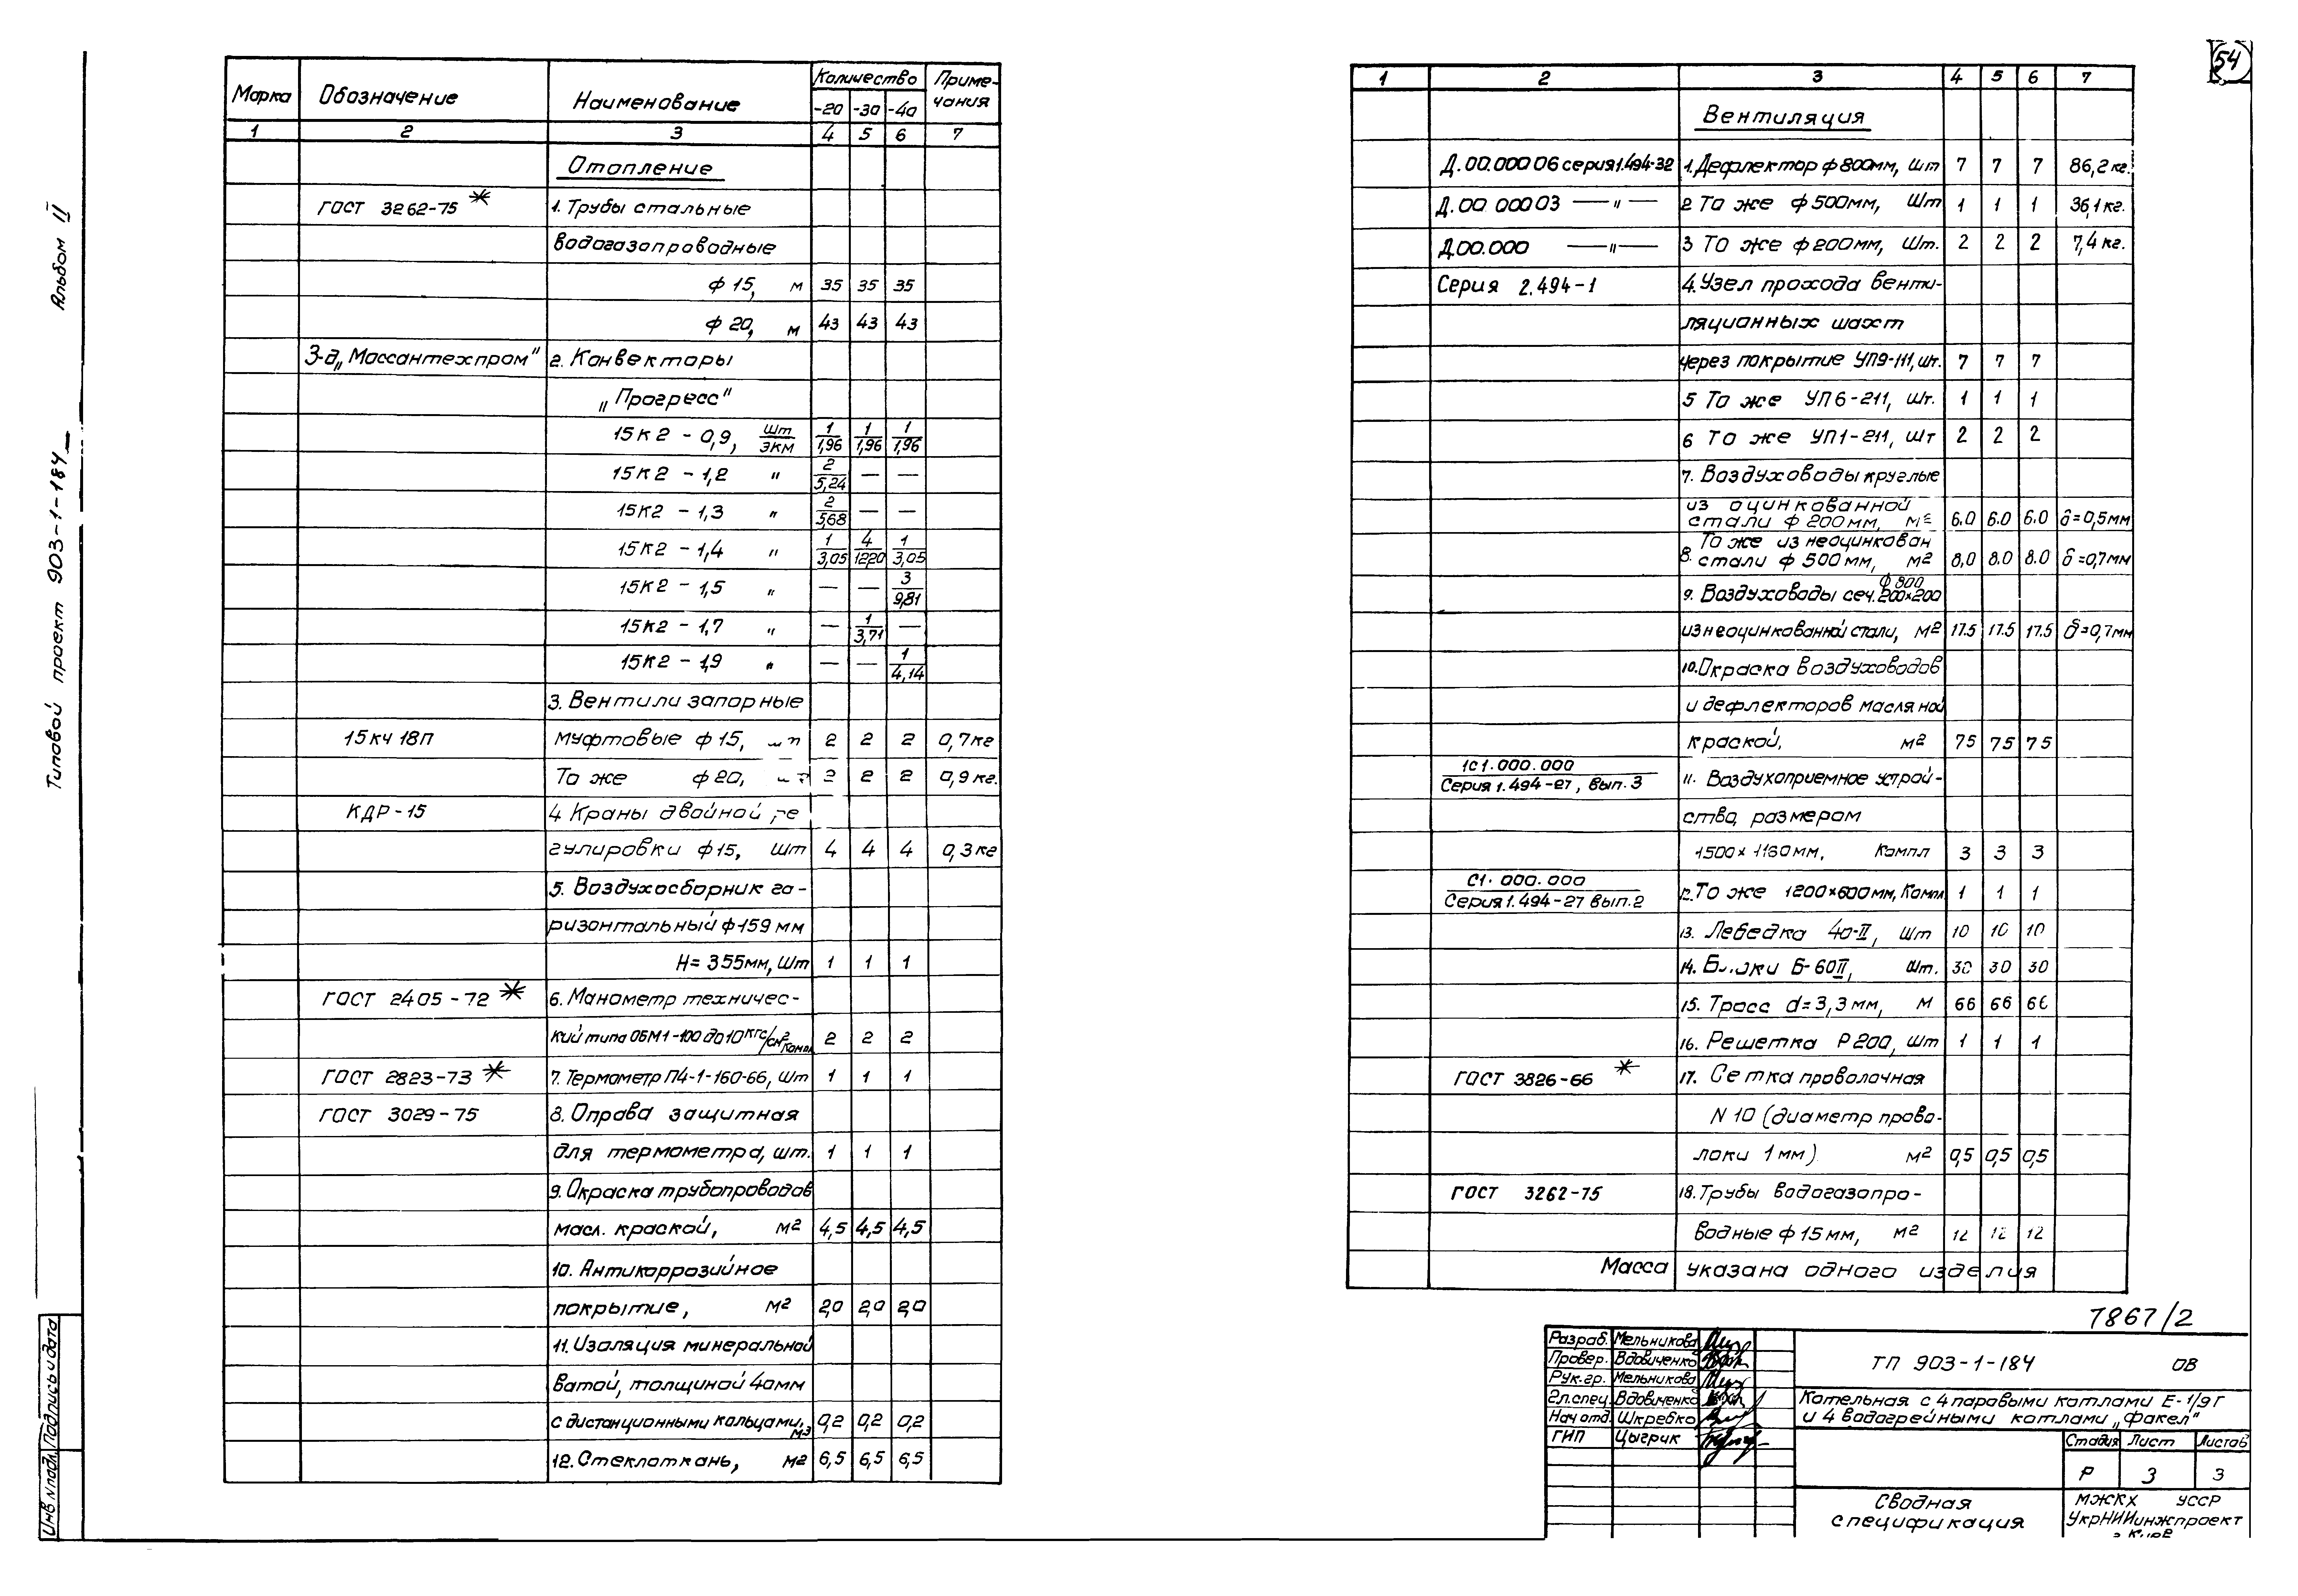 54
Альбом II
Типовой проект 903-1-184
Марка Обозначение Наименование Количество Приме-
-20 -30 -40 чания
1 2 3 4 5 6 7
Отопление
ГОСТ 3262-75* 1. Трубы стальные
водогазопроводные
ф 15, м 35 35 35
ф 20, м 43 43 43
З-д „Моссантехпром" 2. Конвекторы
„Прогресс"
15К2 - 0,9, шт/экм 1/1,96 1/1,96 1/1,96
15К2 - 1,2 " 2/5,24 — —
15К2 - 1,3 " 2/5,68 — —
15К2 - 1,4 " 1/3,05 4/12,20 1/3,05
15К2 - 1,5 " — — 3/9,81
15К2 - 1,7 " — 1/3,71 —
15К2 - 1,9 " — — 1/4,14
3. Вентили запорные
15кч 18П муфтовые ф 15, шт 2 2 2 0,7кг
То же ф 20, шт 2 2 2 0,9 кг.
КДР-15 4 Краны двойной ре
гулировки ф15, шт 4 4 4 0,3кг
5. Воздухосборник го-
ризонтальный ф159 мм
H= 355мм, шт 1 1 1
ГОСТ 2405-72* 6. Манометр техничес-
кий типа ОБМ1-100 до 10 кгс/см2 компл 2 2 2
ГОСТ 2823-73* 7. Термометр П4-1-160-66, шт 1 1 1
ГОСТ 3029-75 8. Оправа защитная
для термометра, шт. 1 1 1
9. Окраска трубопроводов
масл. краской, м2 4,5 4,5 4,5
10. Антикоррозийное
покрытие, м2 2,0 2,0 2,0
11. Изоляция минеральной
ватой, толщиной 40мм
с дистанционными кольцами, м3 0,2 0,2 0,2
12. Стеклоткань, м2 6,5 6,5 6,5
1 2 3 4 5 6 7
Вентиляция
Д.00.000 06 серия 1.494-32 1. Дефлектор ф 800мм, шт 7 7 7 86,2 кг.
Д.00 000 03 —"— 2 То же ф 500мм, шт 1 1 1 36,1 кг.
Д.00.000 —"— 3 То же ф 200мм, шт. 2 2 2 7,4 кг.
Серия 2.494-1 4. Узел прохода венти-
ляционных шахт
через покрытие УП9-111, шт. 7 7 7
5 То же УП6-211, шт. 1 1 1
6 То же УП1-211, шт 2 2 2
7. Воздуховоды круглые
из оцинкованной
стали ф 200мм, м2 6.0 6.0 6.0 δ=0,5мм
8. То же из неоцинкован
стали ф 500мм, м2 8,0 8.0 8.0 δ=0,7мм
9. Воздуховоды сеч. ф 800 200×200
из неоцинкованной стали, м2 17.5 17.5 17.5 δ=0,7мм
10. Окраска воздуховодов
и дефлекторов масляной
краской, м2 75 75 75
1С1.000.000
Серия 1.494-27, вып. 3 11. Воздухоприемное устрой-
ство, размером
1500×1160мм, Компл 3 3 3
С1. 000. 000
Серия 1.494-27 вып. 2 12. То же 1200×600мм, Компл. 1 1 1
13. Лебедка 40-II, шт 10 10 10
14. Блоки Б-60II, шт. 30 30 30
15. Тросс d=3,3мм, м 66 66 66
16. Решетка Р200, шт 1 1 1
ГОСТ 3826-66* 17. Сетка проволочная
N 10 (диаметр прово-
локи 1мм) м2 0,5 0,5 0,5
ГОСТ 3262-75 18. Трубы водогазопро-
водные ф 15мм, м2 12 12 12
Масса указана одного изделия
7867/2
Разраб. Мельникова
Провер. Вдовиченко
Рук.гр. Мельникова
Гл.спец. Вдовиченко
Нач отд. Шкребко
ГИП Цыгрик
ТП 903-1-184 ОВ
Котельная с 4 паровыми котлами Е-1/9Г
и 4 водогрейными котлами „Факел"
Стадия Лист Листов
Р 3 3
Сводная
спецификация
МЖКХ УССР
УкрНИИинжпроект
г. Киев
Инв N подл. Подпись и дата